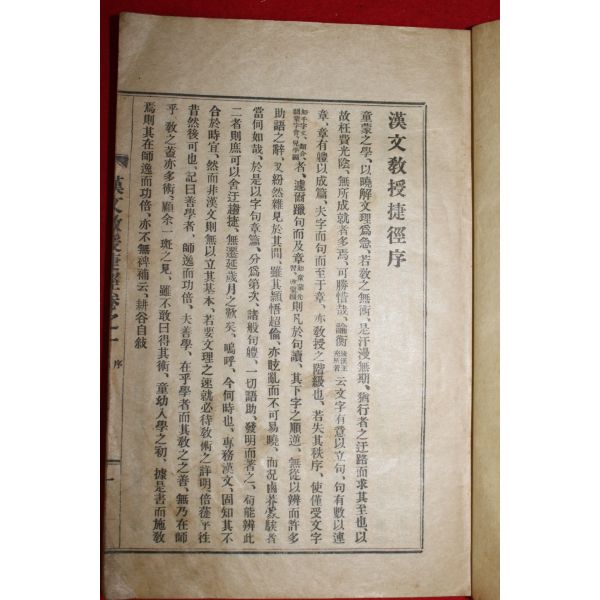 漢文教授捷徑序
童蒙之學、以曉解文理爲急、若教之無術、是汗漫無期、猶行者之迂路而求其至也、以
故枉費光陰、無所成就者多焉、可勝惜哉、論衡後漢王充所著云文字有意以立句、句有數以連
章、章有體以成篇、夫字而句而至于章、亦教授之階級也、若失其秩序、使僅受文字
者、遽爾躐句而及章則凡於句讀、其下字之順逆、無從以辨而許多
助語之辭、又紛然雜見於其間、雖其穎悟超倫、亦眩亂而不可易曉、而況
當何如哉、於是以字句章篇、分爲第次、諸般句體、一切語助、發明而著之、苟能辨此
二者則庶可以舍迂趨捷、無遷延歲月之歎矣、嗚呼、今何時也、專務漢文、固知其不
合於時宜、然而非漢文則無以立其基本、若要文理之速就必待教術之詳明、倍蓰乎徃
昔然後可也、記曰善學者、師逸而功倍、夫善學、在乎學者而其教之之善、無乃在師
乎、教之蓋亦多術、顧余一斑之見、雖不敢曰得其術、童幼入學之初、據是書而施教
焉則其在師逸而功倍、亦不無裨補云、耕谷自敍
漢文教授捷徑卷之一 序 一